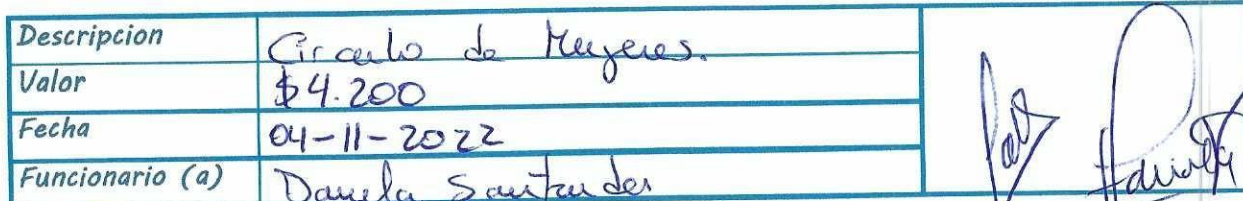 Descripcion Circulo de Mujeres.
Valor $4.200
Fecha 04-11-2022
Funcionario (a) Daniela Santander